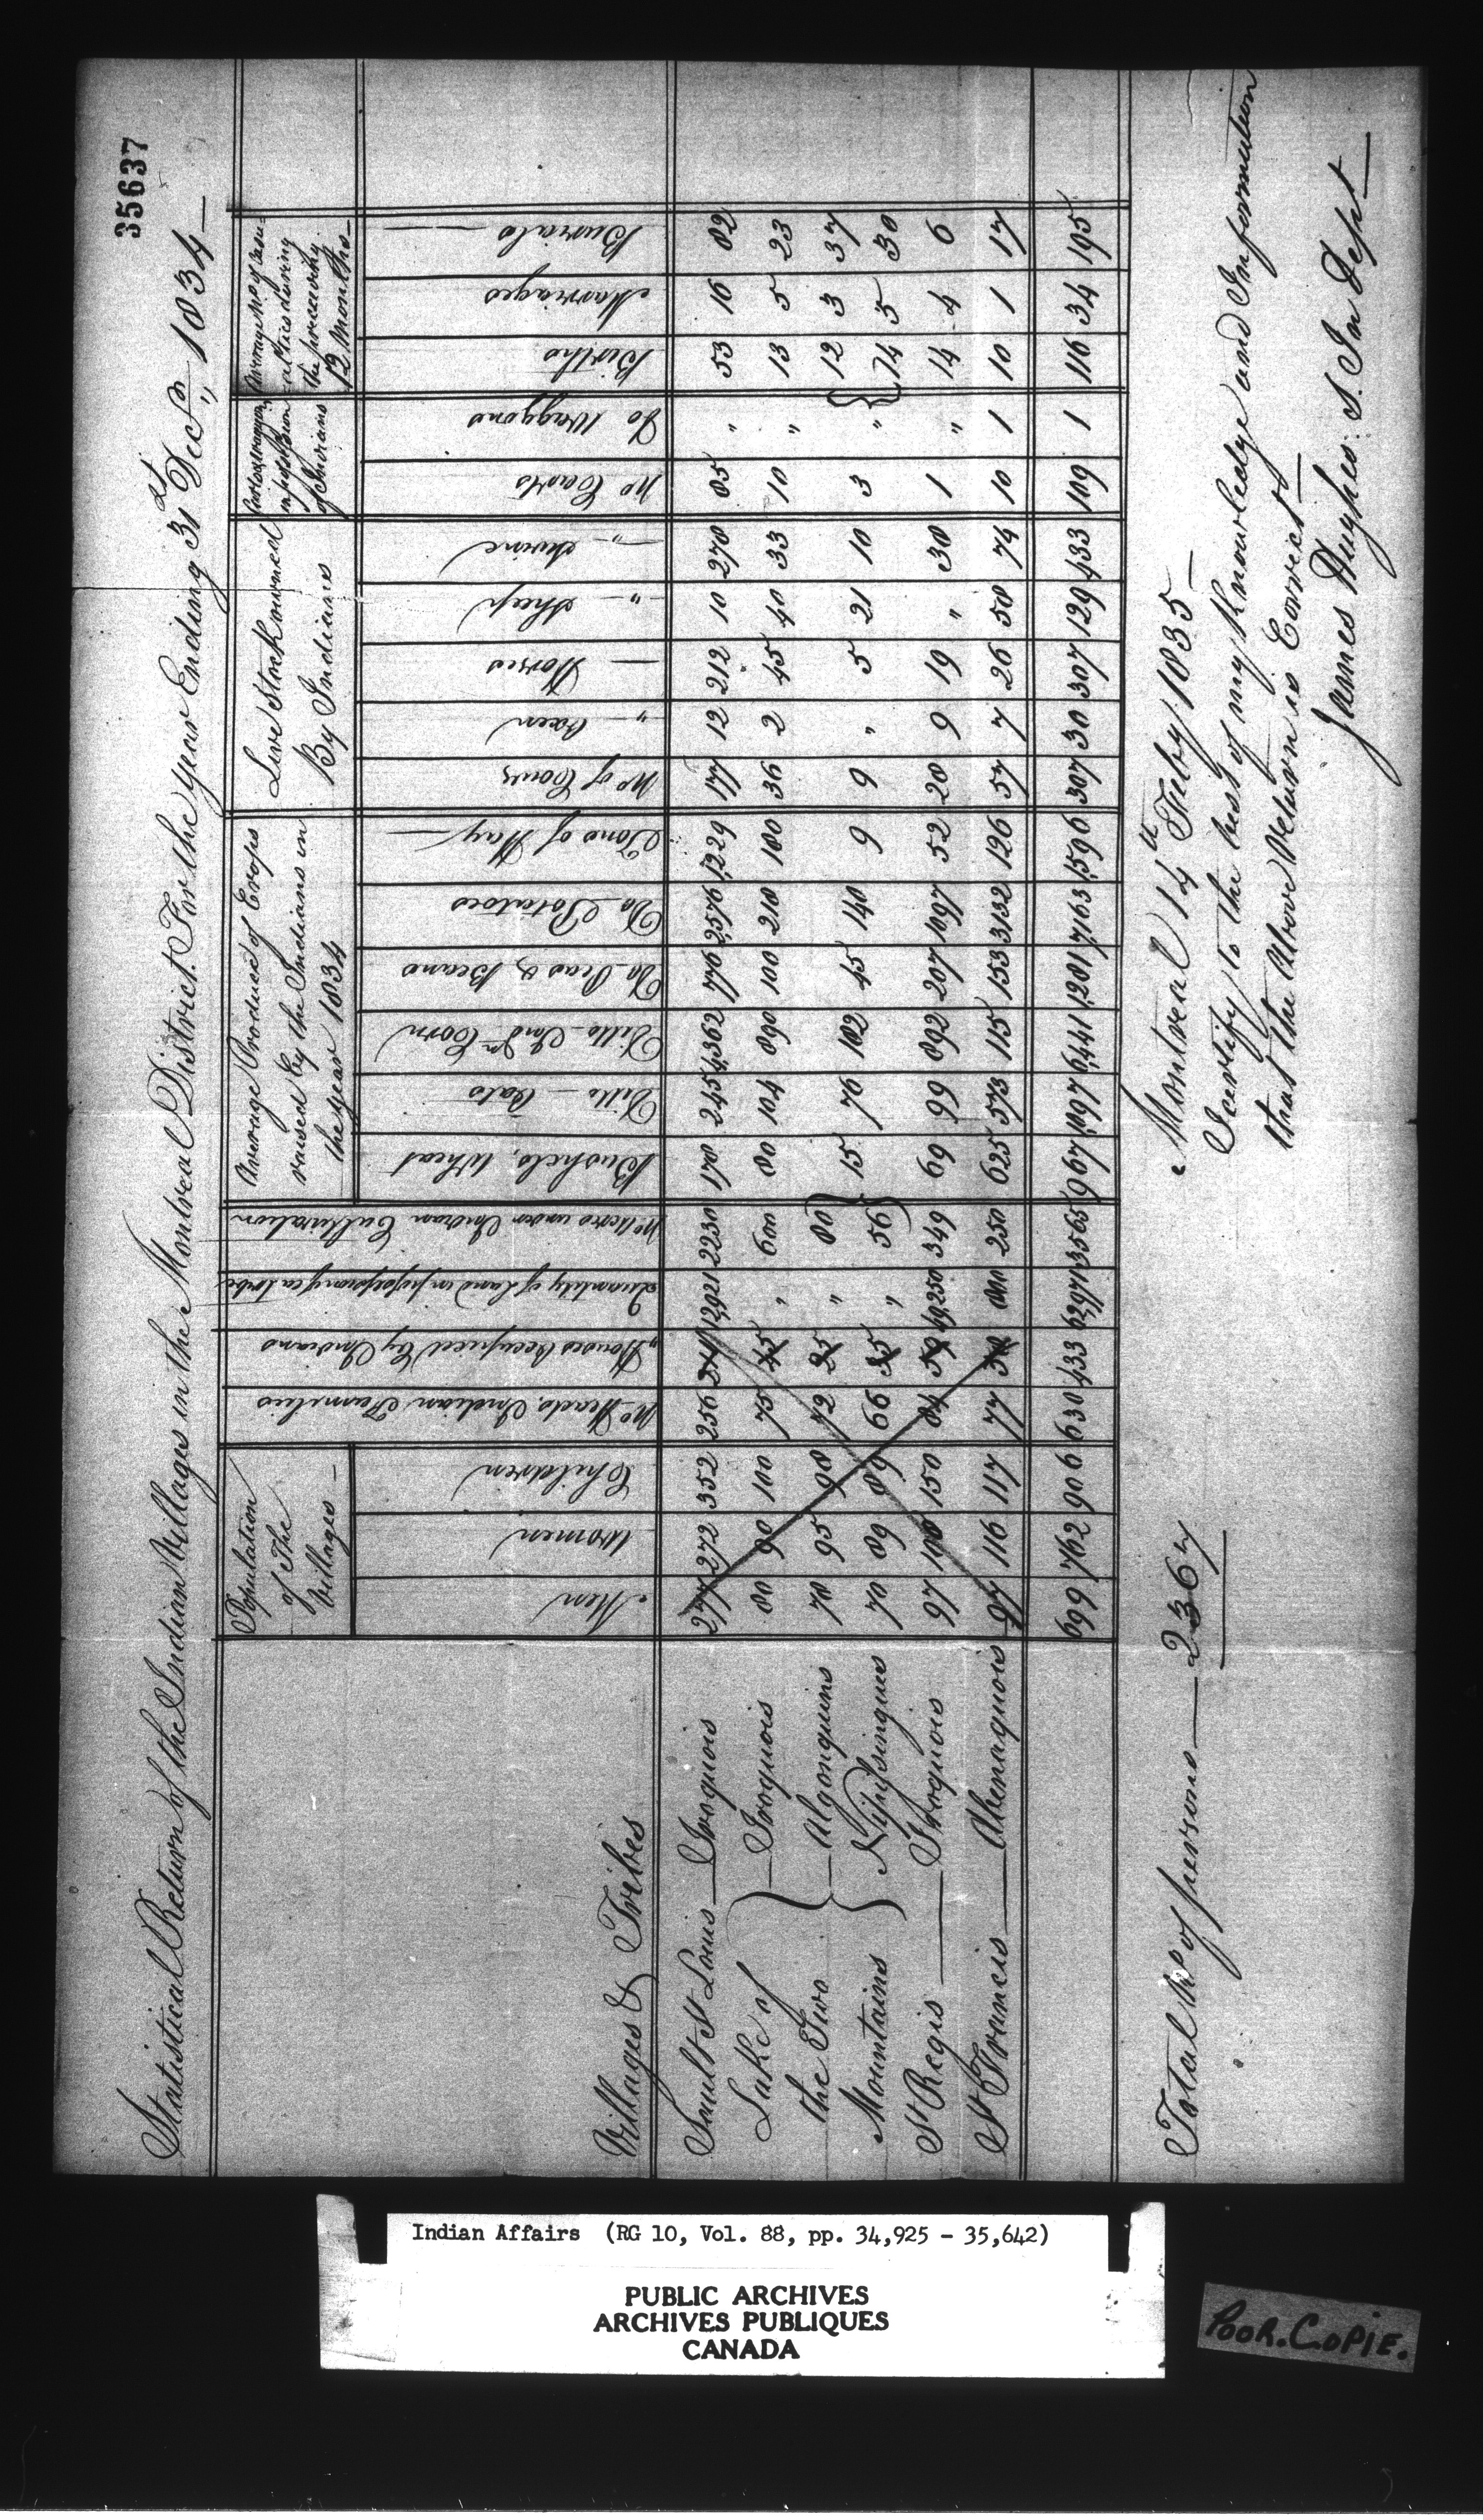 35637
Statistical Return of the Indian Villages in the Montreal District For the Year Ending 31st Decr., 1834
Population of The Villages
Average Produce of Crops raised by the Indians in the year 1834
Live Stock owned By Indians
Villages & Tribes
Men
Women
Children
No. Heads, Indian Families
" Houses Occupied by Indians
Quantity of Land in possession of ea tribe
No Acres under Indian Cultivation
Bushels, Wheat
Ditto - Oats
Ditto - Indn Corn
Do Peas & Beans
Do Potatoes
Tons of Hay
No of Cows
" Oxen
Horses
" Sheep
" Swine
No Carts
Do Waggons
Births
Marriages
Burials
Sault St Louis — Iroquois 277 272 352 256 211 12,921 2230 178 245 4,362 776 2,576 1,229 177 12 212 10 278 85 " 53 16 82
Lake of — Iroquois 80 90 100 75 45 " 600 80 104 890 100 218 180 36 2 45 40 33 10 " 13 5 23
the Two — Algonquins 70 95 98 72 25 " 80 12 3 37
Mountains Nipissingues 70 89 89 66 35 " 56 15 76 182 45 140 9 9 " 5 21 10 3 " 14 5 30
St Regis — Iroquois 97 100 150 84 59 49,250 349 69 99 892 207 1097 52 28 9 19 " 38 1 " 14 4 6
St Francis — Abenaquois 97 116 117 77 58 800 250 625 573 115 153 3132 126 57 7 26 58 74 10 1 10 1 17
699 762 906 630 433 62,971 3565 967 1,097 6,441 1,281 7,163 1,596 307 30 307 129 433 109 1 116 34 195
Total No of persons — 2367
Montreal 14th Feby 1835 —
I certify to the best of my Knowledge and Information
that the Above Return is Correct —
James Hughes S. In Dept
Indian Affairs (RG 10, Vol. 88, pp. 34,925 - 35,642)
PUBLIC ARCHIVES
ARCHIVES PUBLIQUES
CANADA
POOR. COPIE.